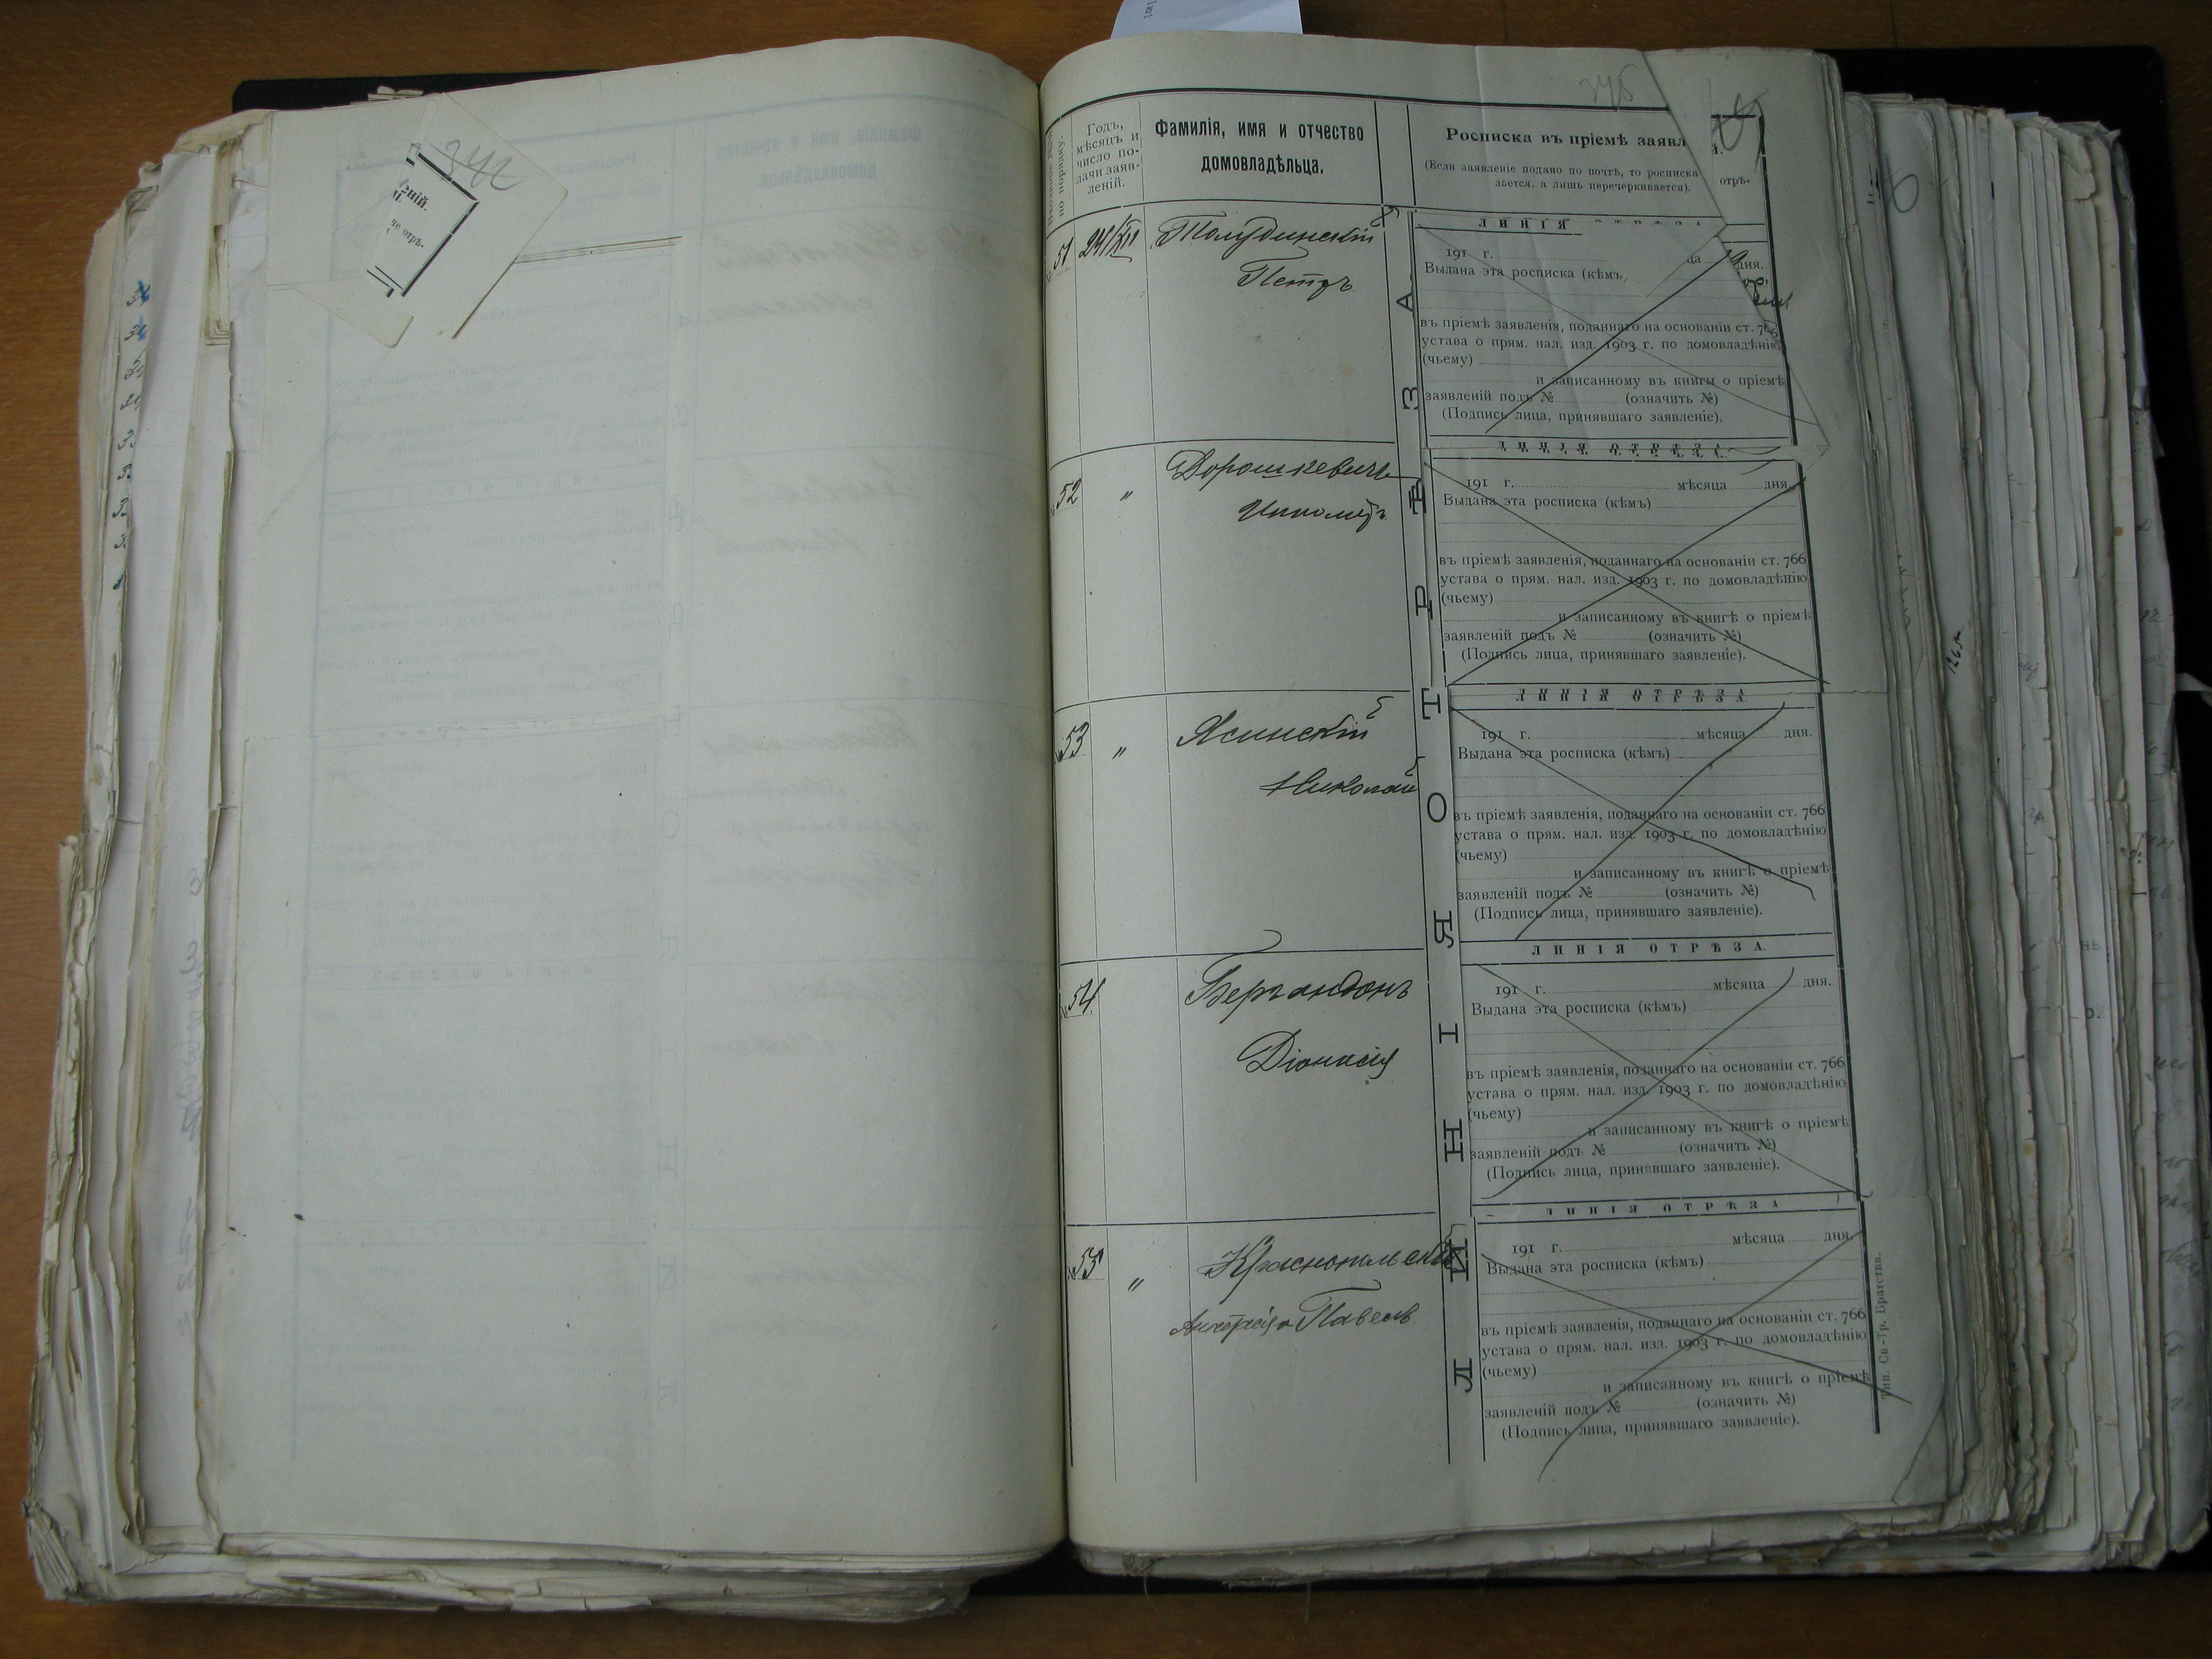 342
еній.
не отрѣ-
по порядку.
Годъ,
мѣсяцъ и
число по-
дачи заяв-
леній.
Фамилія, имя и отчество
домовладѣльца.
Росписка въ пріемѣ заявл
(Если заявленіе подано по почтѣ, то росписка
отрѣ-
зается, а лишь перечеркивается).
ЛИНІЯ ОТРѢЗА
51
24/XII
Толудинскій
Петръ
ЛИНІЯ
191 г.
дня.
Выдана эта росписка (кѣмъ
въ пріемѣ заявленія, поданнаго на основаніи ст. 766
устава о прям. нал. изд. 1903 г. по домовладѣнію
(чьему)
и записанному въ книгы о пріемѣ
заявленій подъ № (означить №)
(Подпись лица, принявшаго заявленіе).
ЛИНІЯ ОТРѢЗА
52
"
Дорошкевичъ
Ипполитъ
191 г. мѣсяца дня.
Выдана эта росписка (кѣмъ)
въ пріемѣ заявленія, поданнаго на основаніи ст. 766
устава о прям. нал. изд. 1903 г. по домовладѣнію
(чьему)
и записанному въ книгѣ о пріемѣ
заявленій подъ № (означить №)
(Подпись лица, принявшаго заявленіе).
ЛИНІЯ ОТРѢЗА
53
"
Ясинскій
Николай
191 г. мѣсяца дня.
Выдана эта росписка (кѣмъ)
въ пріемѣ заявленія, поданнаго на основаніи ст. 766
устава о прям. нал. изд. 1903 г. по домовладѣнію
(чьему)
и записанному въ книгѣ о пріемѣ
заявленій подъ № (означить №)
(Подпись лица, принявшаго заявленіе).
ЛИНІЯ ОТРѢЗА.
54
Бергандонъ
Діонисія
191 г. мѣсяца дня.
Выдана эта росписка (кѣмъ)
въ пріемѣ заявленія, поданнаго на основаніи ст. 766
устава о прям. нал. изд. 1903 г. по домовладѣнію
(чьему)
и записанному въ книгѣ о пріемѣ
заявленій подъ № (означить №)
(Подпись лица, принявшаго заявленіе).
ЛИНІЯ ОТРѢЗА
55
"
Краснопольскій
Анастасія и Павелъ
191 г. мѣсяца дня.
Выдана эта росписка (кѣмъ)
въ пріемѣ заявленія, поданнаго на основаніи ст. 766
устава о прям. нал. изд. 1903 г. по домовладѣнію
(чьему)
и записанному въ книгѣ о пріемѣ
заявленій подъ № (означить №)
(Подпись лица, принявшаго заявленіе).
Тип. Св.-Тр. Братства.